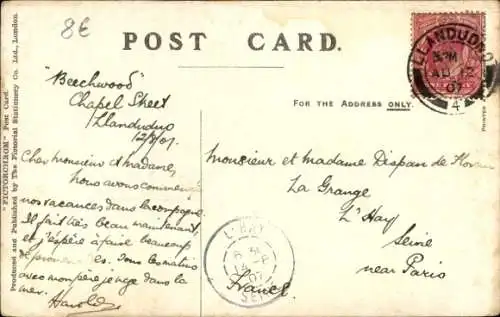 8€
POST CARD.
LLANDUDNO
AU 12
07
4
FOR THE ADDRESS ONLY.
"PICTORCHROM" Post Card.
Produced and Published by The Pictorial Stationery Co. Ltd., London.
"Beechwood"
Chapel Street
Llandudno
12/8/07.
Cher monsieur et madame,
nous avons commencé
nos vacances dans la campagne.
Il fait très beau maintenant,
et j'espère à faire beaucoup
de promenades. Tous les matins
avec mon père je nage dans la
mer.
Harold
Monsieur et madame Dispan de
La Grange
L'Hay
Seine
near Paris
France
L'HAY
07